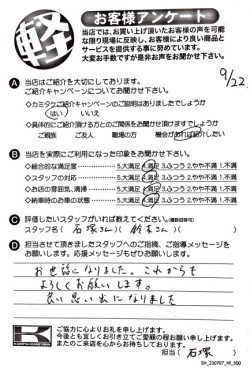 軽
お客様アンケート
当店では、お買い上げ頂いたお客様の声を可能
な限り現場に反映し、お客様により良い商品と
サービスを提供する事に努めています。
大変お手数ですが是非お声をお聞かせ下さい。
9/22
A 当店はご紹介を大切にしてあります。
ご紹介キャンペーンについてお聞かせ下さい。
◇カミタケご紹介キャンペーンのご説明はありましたでしょうか
はい いいえ
◇具体的にご紹介頂ける方とのご関係をお聞かせ頂けますでしょうか
ご親族 ご友人 職場の方 機会があれば紹介したい
B 当店を実際にご利用になった印象をお聞かせ下さい。
◇総合的な満足度 5大満足 4満足 3ふつう 2やや不満 1不満
◇スタッフの対応 5大満足 4満足 3ふつう 2やや不満 1不満
◇お店の雰囲気、清掃 5大満足 4満足 3ふつう 2やや不満 1不満
◇納車時のお車の状態 5大満足 4満足 3ふつう 2やや不満 1不満
C 評価したいスタッフがいれば教えてください。(複数回答可)
スタッフ名( 石塚さん )( 鈴木さん )
D 担当させて頂きましたスタッフへのご指摘、ご指導メッセージを
お願いします。応援メッセージもぜひお願いします。
お世話になりました。これからも
よろしくお願いします。
良い思い出になりました
ご協力に心よりお礼を申し上げます。
今後とも宜しくお引き立てご愛顧の程お願い申し上げます。
またのご来店を心からお待ちしております。
担当( 石塚 )